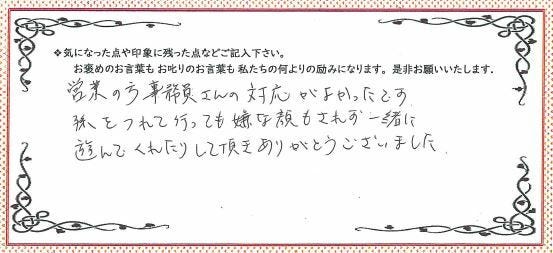 ❖気になった点や印象に残った点などご記入下さい。
お褒めのお言葉も お叱りのお言葉も 私たちの何よりの励みになります。是非お願いいたします.
営業の方 事務員さんの対応がよかったです
孫をつれて行っても嫌な顔もされず一緒に
遊んでくれたりして頂きありがとうございました